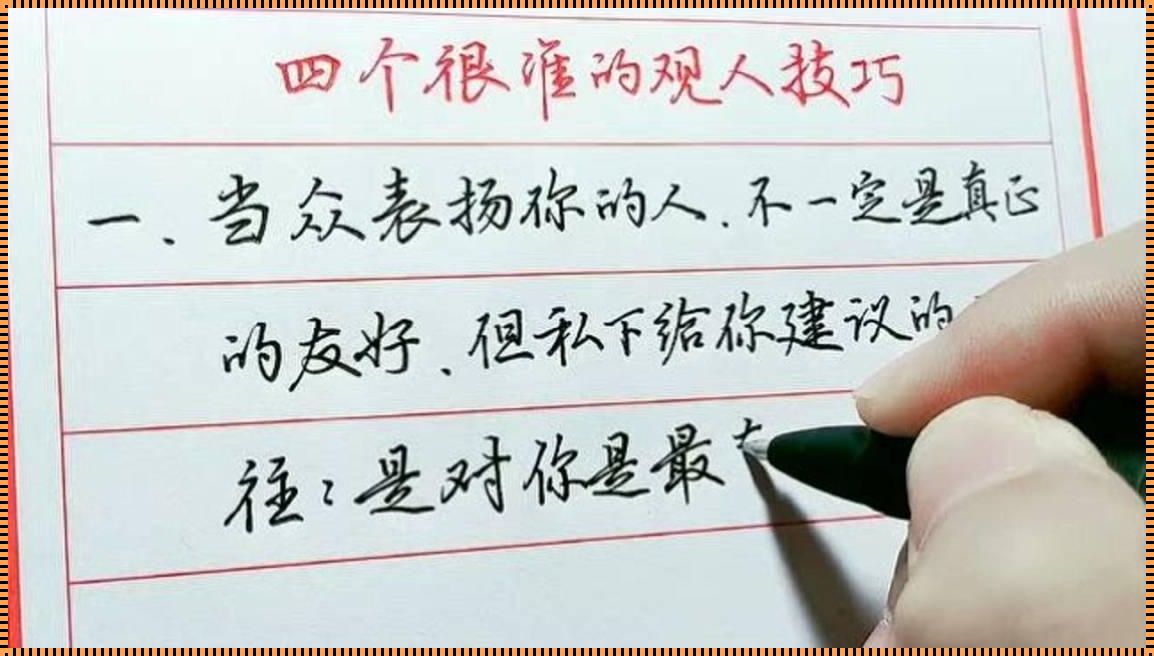 四个很准的观人技巧
一、当众表扬你的人、不一定是真正
的友好、但私下给你建议的
往々是对你是最